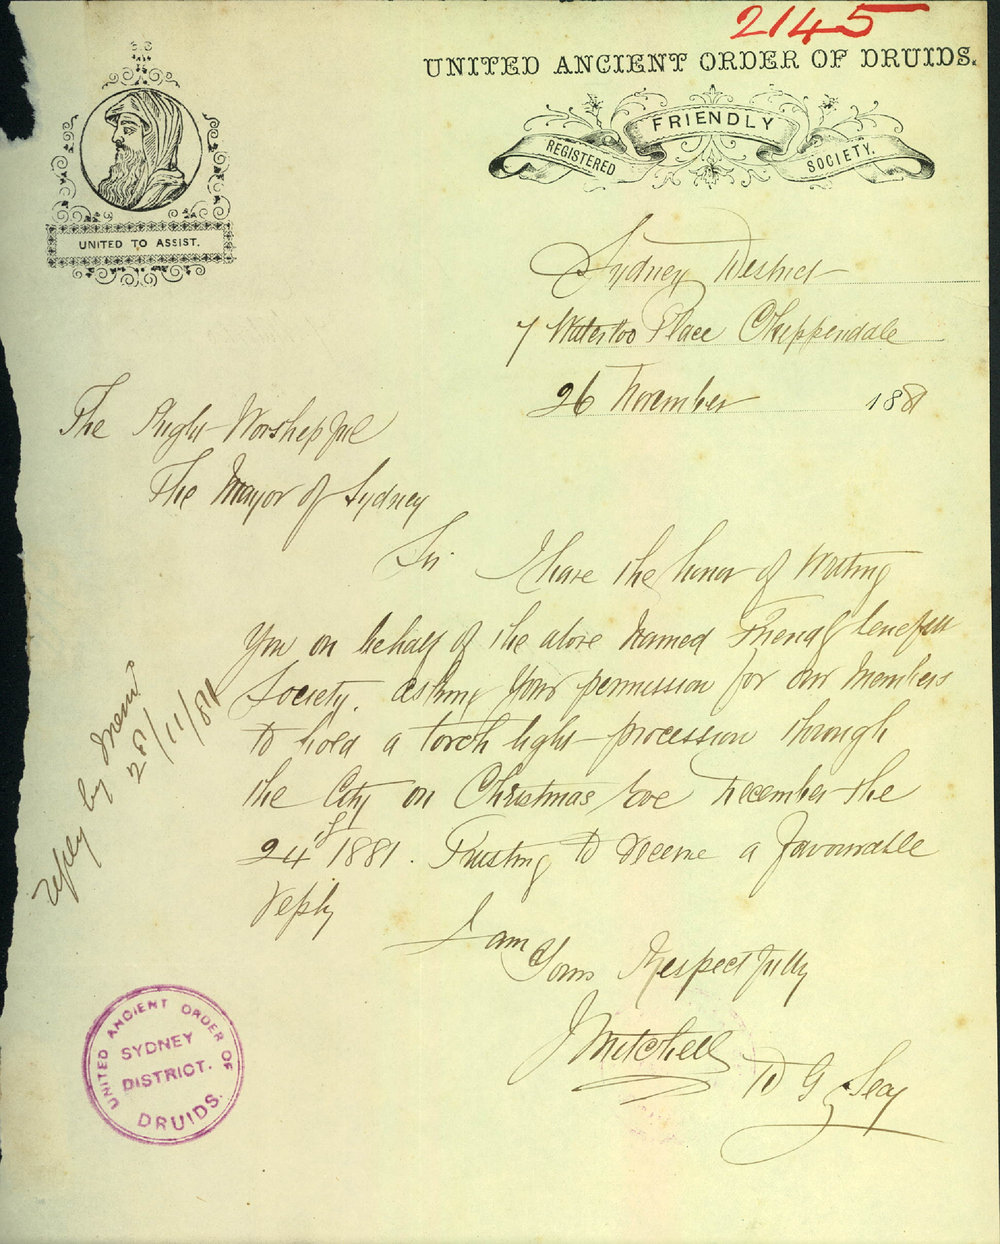 2145
UNITED ANCIENT ORDER OF DRUIDS.
REGISTERED FRIENDLY SOCIETY.
UNITED TO ASSIST.
Sydney District
7 Waterloo Place Chippendale
26 November 1881
The Right Worshipful
The Mayor of Sydney
Sir I have the honor of Writing
You on behalf of the above Named Friendly benefit
Society. asking Your permission for our Members
to hold a torch light procession through
the City on Christmas Eve December the
24th 1881. Trusting to receive a favourable
reply
I am
Yours Respectfully
J Mitchell
D G Secy
reply by Memo
28/11/81
UNITED ANCIENT ORDER OF DRUIDS.
SYDNEY
DISTRICT.